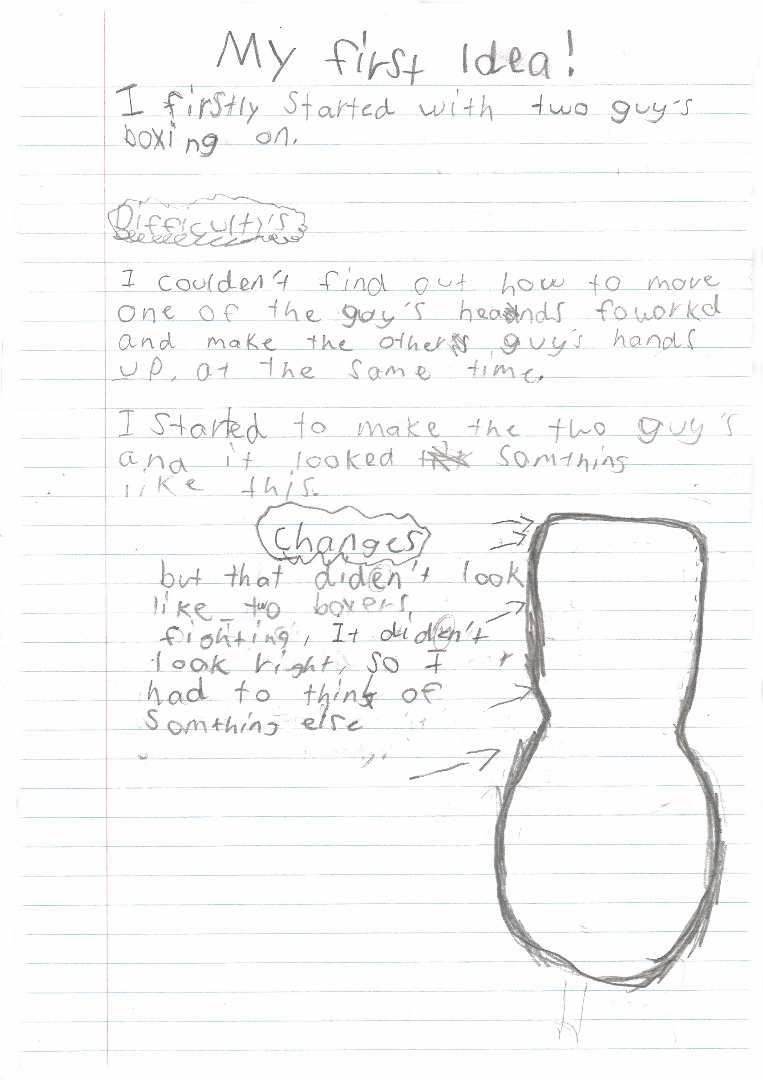 My first Idea!
I firstly started with two guy's
boxing on.
Difficulty's
I coulden't find out how to move
one of the guy's hands foworkd
and make the other guy's hands
up, at the same time.
I started to make the two guy's
and it looked somthing
like this.
Changes
but that diden't look
like two boxers
fighting, It diden't
look right, so I
had to think of
somthing else